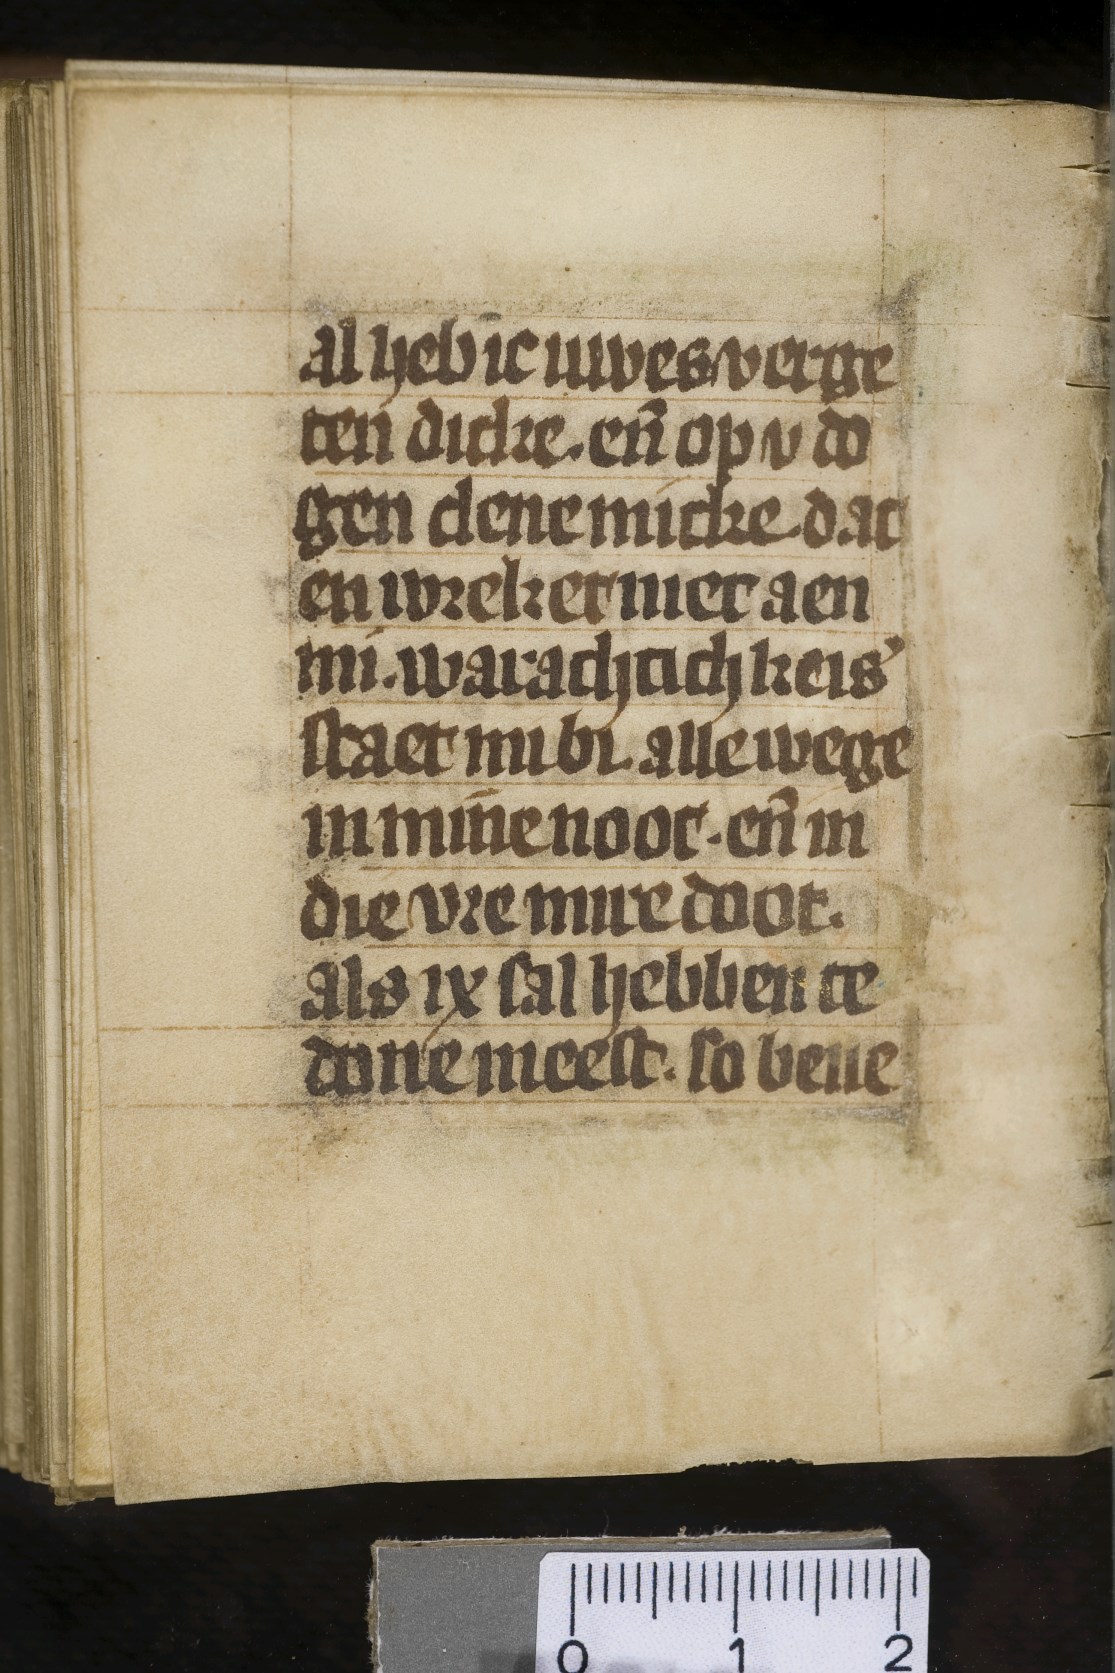 al heb ic iuwes verge
ten dicke. en̄ op v do
gen clene micke. dat
en wreket niet aen
mi. warachtich keis᾿
staet mi bi. alle wege
in mine noot. en̄ in
die vre mire doot.
als ix sal hebben te
done meest. so beue
0 1 2